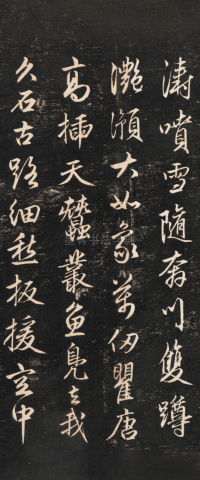 濤噴雪隨奔川雙蹲
灧澦大如象萬仞瞿唐
高插天蠶叢魚鳧去我
久石古路細愁扳援空中